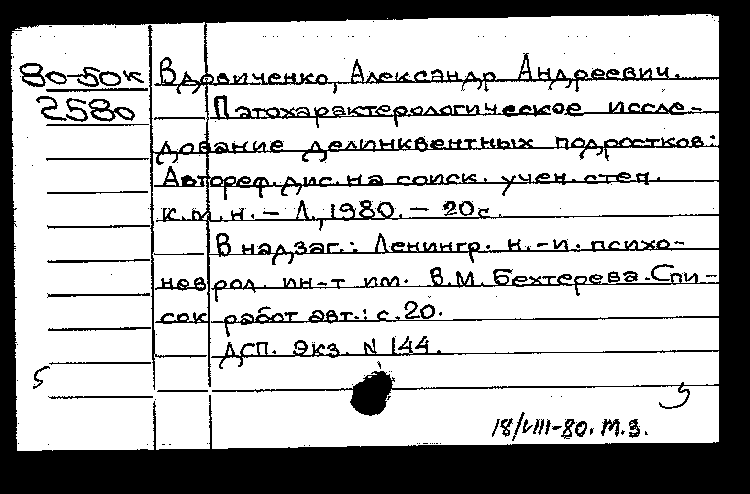 80-50к
2580
Вдовиченко, Александр Андреевич.
Патохарактерологическое иссле-
дование делинквентных подростков:
Автореф. дис. на соиск. учен. степ.
к.м.н. - Л., 1980. - 20с.
В надзаг.: Ленингр. н.-и. психо-
неврол. ин-т им. В.М. Бехтерева. Спи-
сок работ авт.: с. 20.
ДСП. Экз. N 144.
18/VIII-80. М.З.